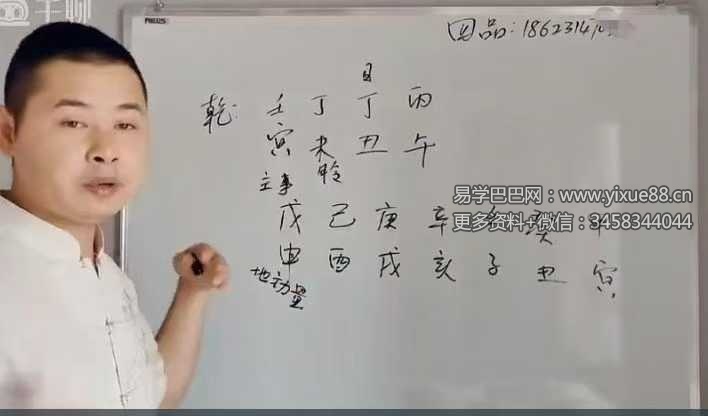 千聊
图品：186231470
日
乾：壬 丁 丁 丙
寅 未 丑 午
主事 胎
戊 己 庚 辛 壬 癸 甲
申 酉 戌 亥 子 丑 寅
地劫星
易学巴巴网：www.yixue88.cn
更多资料+微信：3458344044